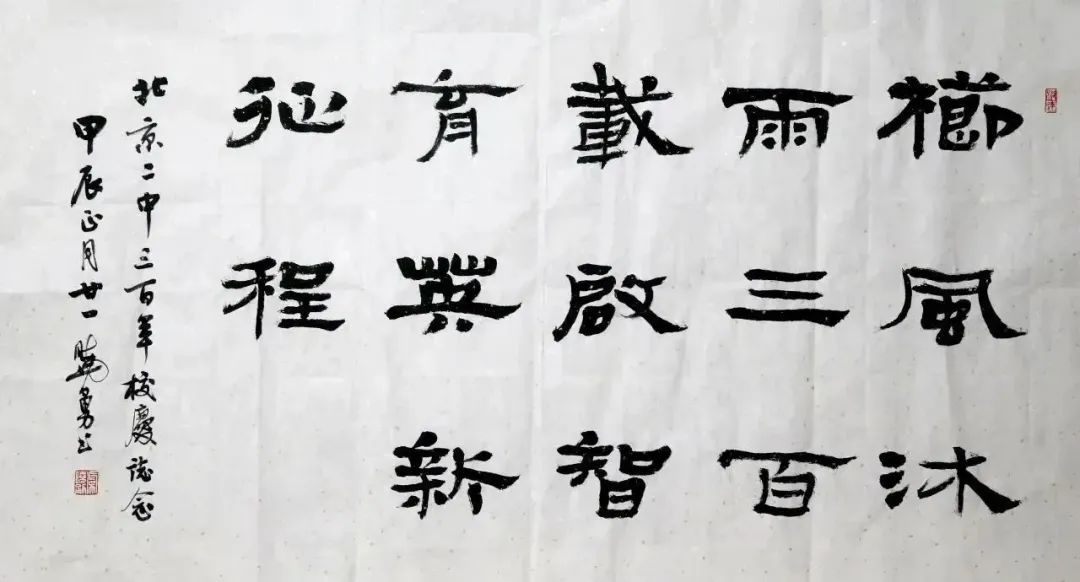 櫛風沐
雨三百
載啟智
育英新
征程
北京二中三百年校慶誌念
甲辰正月廿一曉勇书